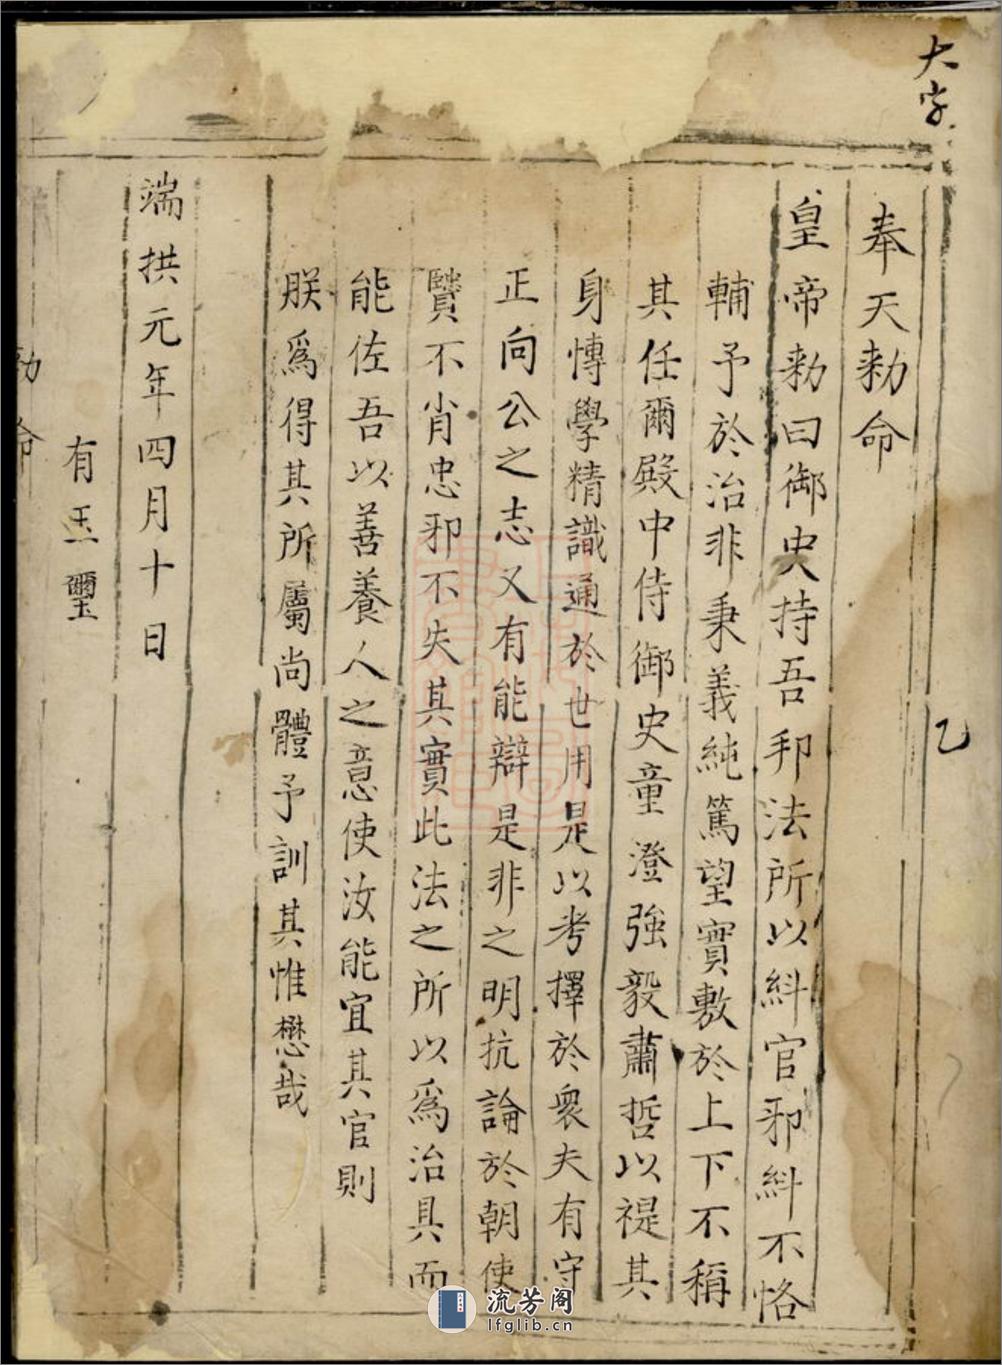 大字
奉天勑命
皇帝勑曰御史持吾邦法所以糾官邪糾不恪
輔予於治非秉義純篤望實敷於上下不稱
其任爾殿中侍御史童澄強毅肅哲以禔其
身博學精識通於世用是以考擇於衆夫有守
正向公之志又有能辯是非之明抗論於朝使
賢不肖忠邪不失其實此法之所以爲治具而
能佐吾以善養人之意使汝能宜其官則
朕爲得其所屬尚體予訓其惟懋哉
端拱元年四月十日
有玉璽
勑命
乙
流芳阁
lfglib.cn